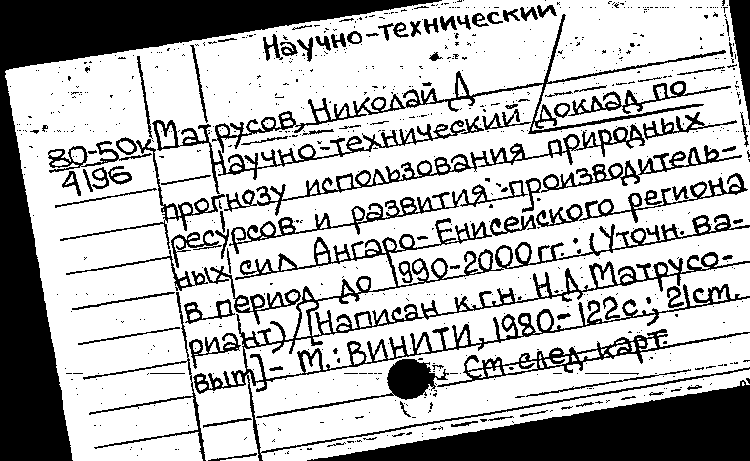 Научно-технический
Матрусов, Николай Д
80-50к
4196
Научно-технический доклад по
прогнозу использования природных
ресурсов и развития производитель-
ных сил Ангаро-Енисейского региона
в период до 1990-2000 гг.: (Уточн. ва-
риант) / [Написан к.г.н. Н.Д. Матрусо-
вым] - М.: ВИНИТИ, 1980.- 122с.; 21 ст.
См. след. карт.